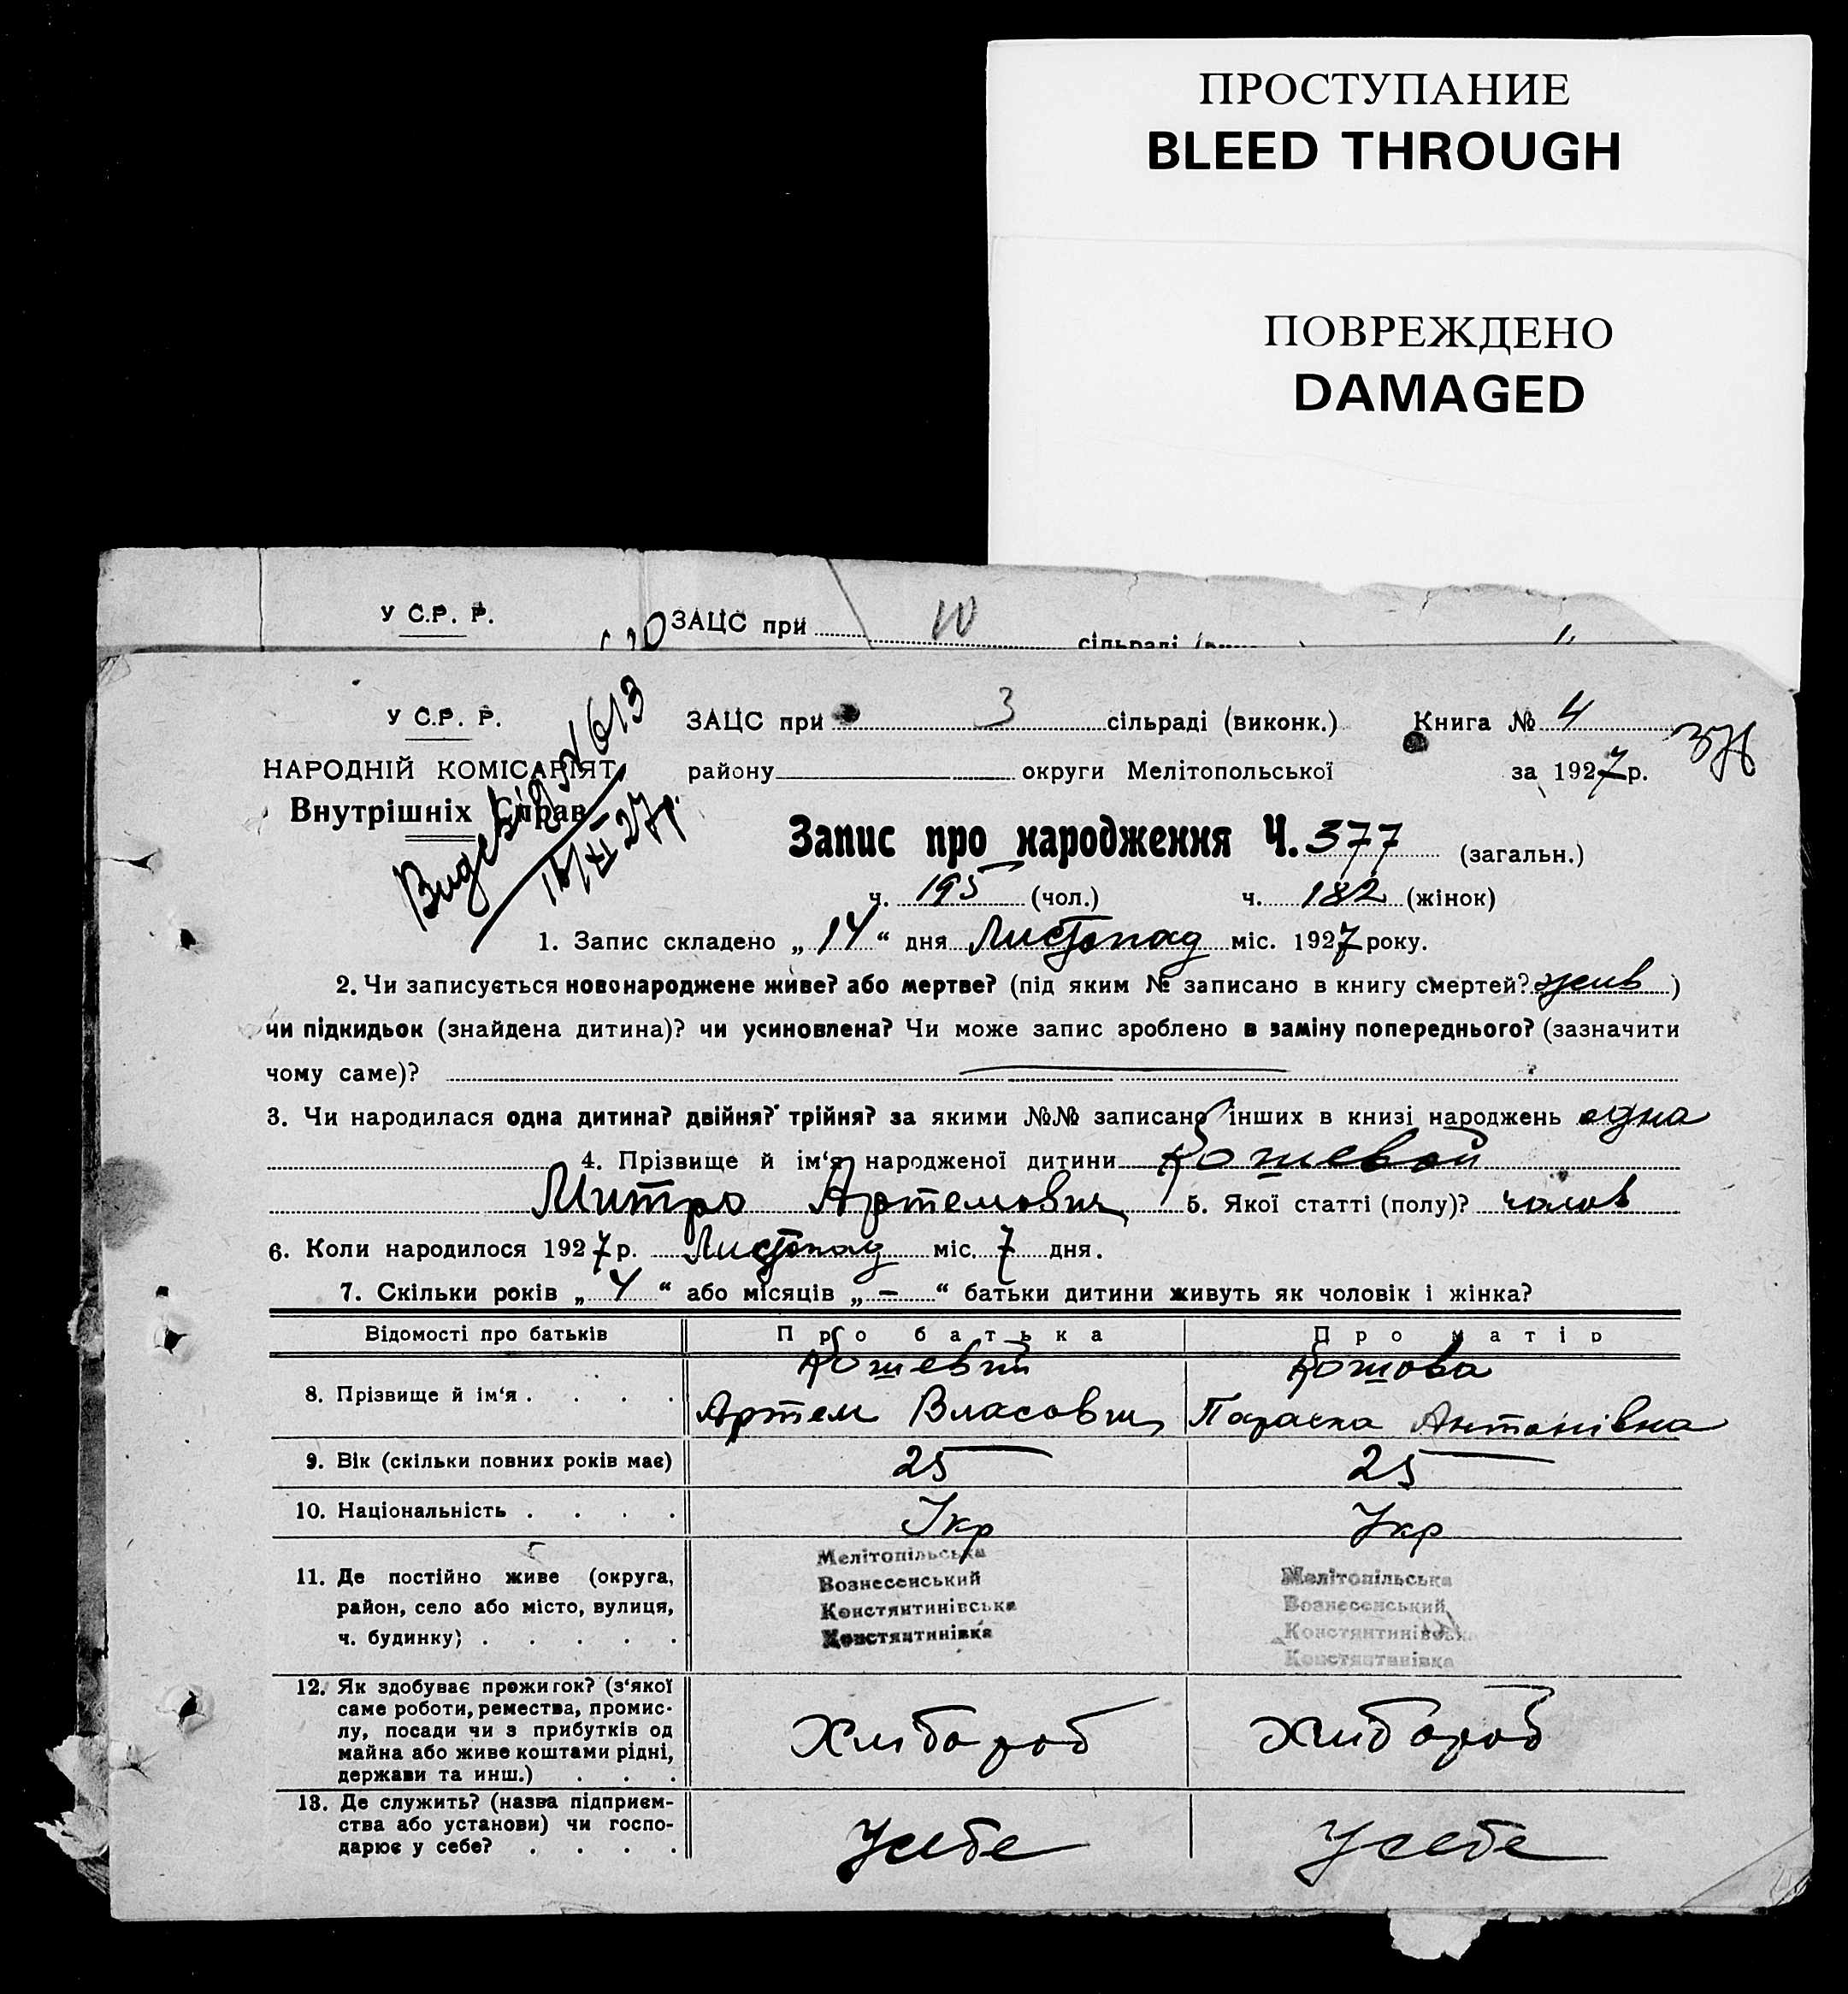 ПРОСТУПАНИЕ
BLEED THROUGH
ПОВРЕЖДЕНО
DAMAGED
У С.Р. Р.
ЗАЦС при 10 сільраді
У С.Р. Р.
НАРОДНІЙ КОМІСАРІЯТ
Внутрішніх Справ
№ 613
16/XI 27р.
ЗАЦС при 3 сільраді (виконк.) Книга № 4
376
району округи Мелітопольської за 1927 р.
Запис про народження Ч. 377 (загальн.)
ч. 195 (чол.) ч. 182 (жінок)
1. Запис складено „ 14 “ дня Листопад міс. 1927 року.
2. Чи записується новонароджене живе? або мертве? (під яким № записано в книгу смертей? жив )
чи підкидьок (знайдена дитина)? чи усиновлена? Чи може запис зроблено в заміну попереднього? (зазначити
чому саме)?
3. Чи народилася одна дитина? двійня? трійня? за якими №№ записано інших в книзі народжень одна
4. Прізвище й ім‘я народженої дитини Кошевой
Митро Артемович 5. Якої статті (полу)? чолов
6. Коли народилося 1927 р. Листопад міс. 7 дня.
7. Скільки років „ 4 “ або місяців „ — “ батьки дитини живуть як чоловік і жінка?
Відомості про батьків Про батька Про матір
8. Прізвище й ім‘я . . . . Кошевий Артем Власович Кошова Параска Антонівна
9. Вік (скільки повних років має) 25 25
10. Національність . . . . Укр Укр
11. Де постійно живе (округа,
район, село або місто, вулиця,
ч. будинку) . . . . .
Мелітопільська
Вознесенський
Констянтинівська
Констянтинівка
Мелітопільська
Вознесенський
Констянтинівська
Констянтинівка
12. Як здобуває прожиток? (з‘якої
саме роботи, ремества, промис-
лу, посади чи з прибутків од
майна або живе коштами рідні,
держави та инш.) . . .
Хлібороб Хлібороб
13. Де служить? (назва підприєм-
ства або установи) чи госпо-
дарює у себе? . . . .
У себе У себе